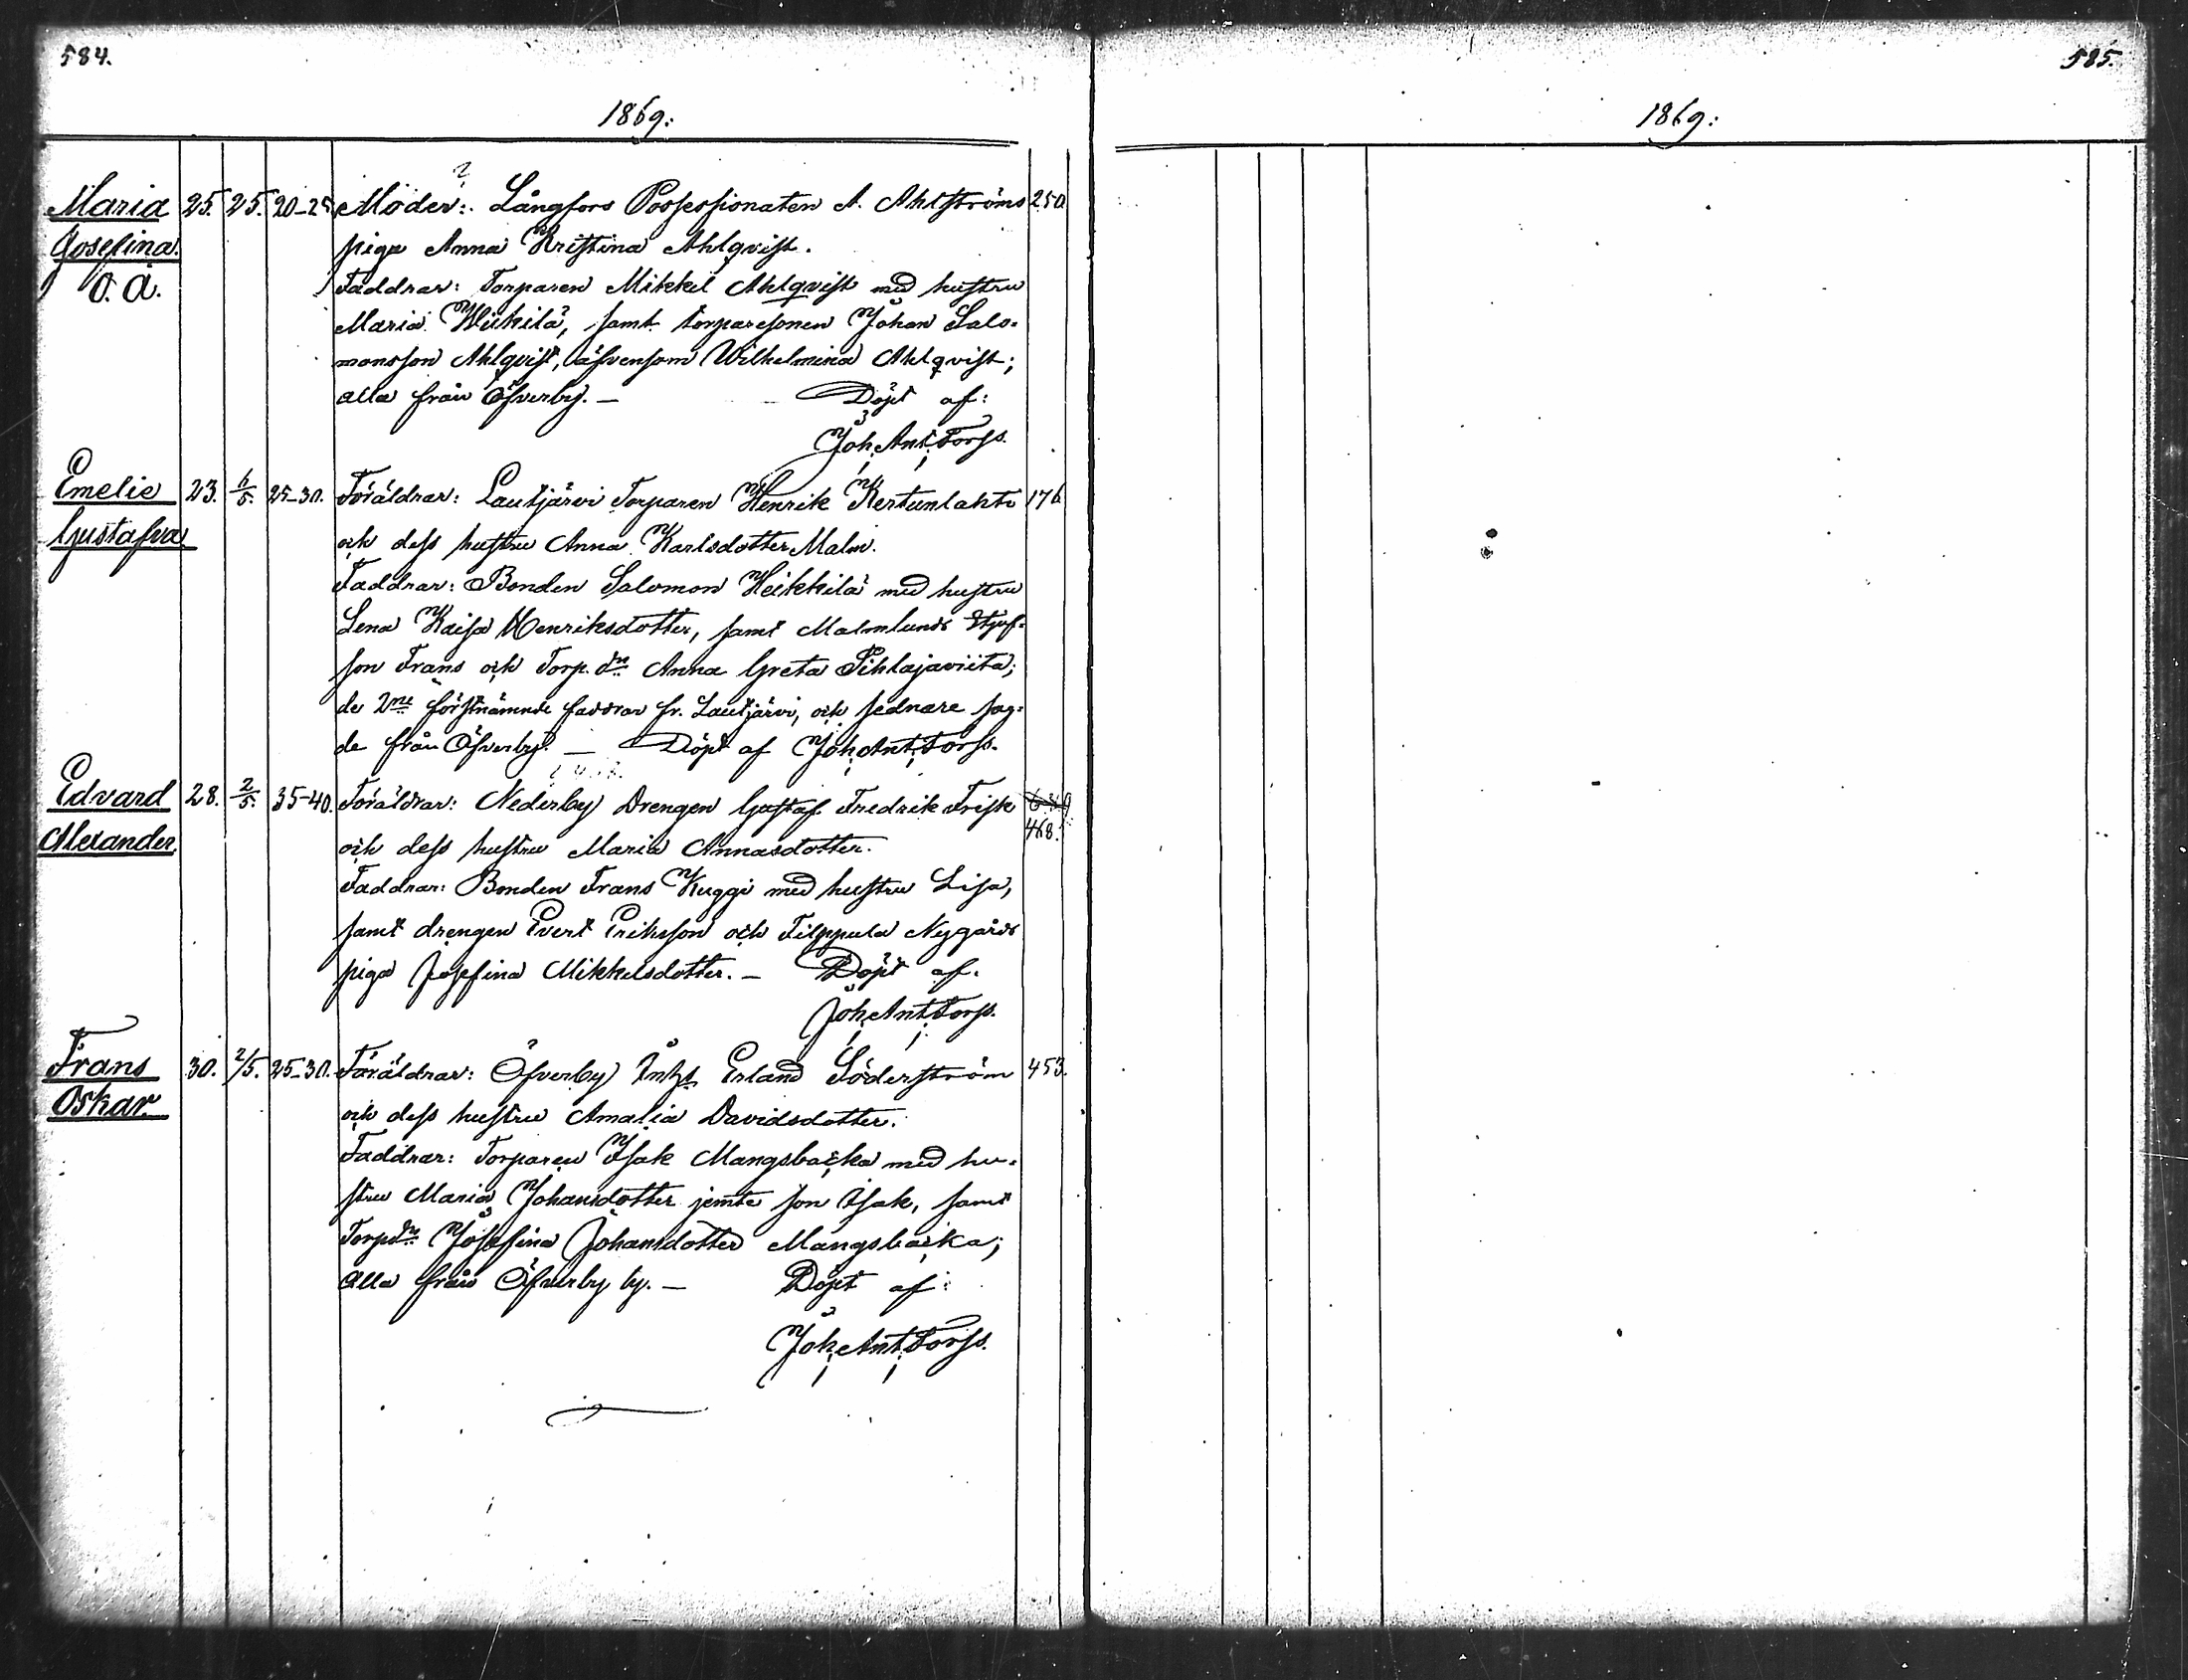 584.
1869:
Maria 25. 25. 20-25 Moder: Långfors Possessionaten A. Ahlströms 250.
Josefina. piga Anna Kristina Ahlqvist.
O. Ä. Faddrar: Torparen Mikkel Ahlqvist med hustru
Maria Wiikilä, samt torparesonen Johan Salo-
monsson Ahlqvist, äfvensom Wilhelmina Ahlqvist;
alla från Öfverby. — Döpt af:
Joh. Ant. Forss.
Emelie 23. 6/5. 25-30. Föräldrar: Lautjärvi Torparen Henrik Kertunlahti 176
Gustafva och dess hustru Anna Karlsdotter Malm.
Faddrar: Bonden Salomon Heikkilä med hustru
Lena Kaisa Henriksdotter, samt Malmlunds Styf-
son Frans och Torp. dn Anna Greta Pihlajaviita;
de 2ne förstnämnde faddrar fr. Lautjärvi, och sednare sag-
de från Öfverby. — Döpt af Joh. Ant. Forss.
Edvard 28. 2/5. 35-40. Föräldrar: Nederby Drengen Gustaf Fredrik Frisk
468.
Alexander. och dess hustru Maria Annasdotter.
Faddrar: Bonden Frans Kuggi med hustru Lisa,
samt drengen Evert Eriksson och Filppula Nygårds
piga Josefina Mikkelsdotter. — Döpt af.
Joh. Ant. Forss.
Frans 30. 2/5. 25-30. Föräldrar: Öfverby Inhs. Erland Söderström 453.
Oskar. och dess hustru Amalia Davidsdotter.
Faddrar: Torparen Isak Mangsbacka med hu-
stru Maria Johansdotter jemte son Isak, samt
Torpdn Josefina Johansdotter Mangsbacka;
alla från Öfverby by. — Döpt af:
Joh. Ant. Forss.
585.
1869: